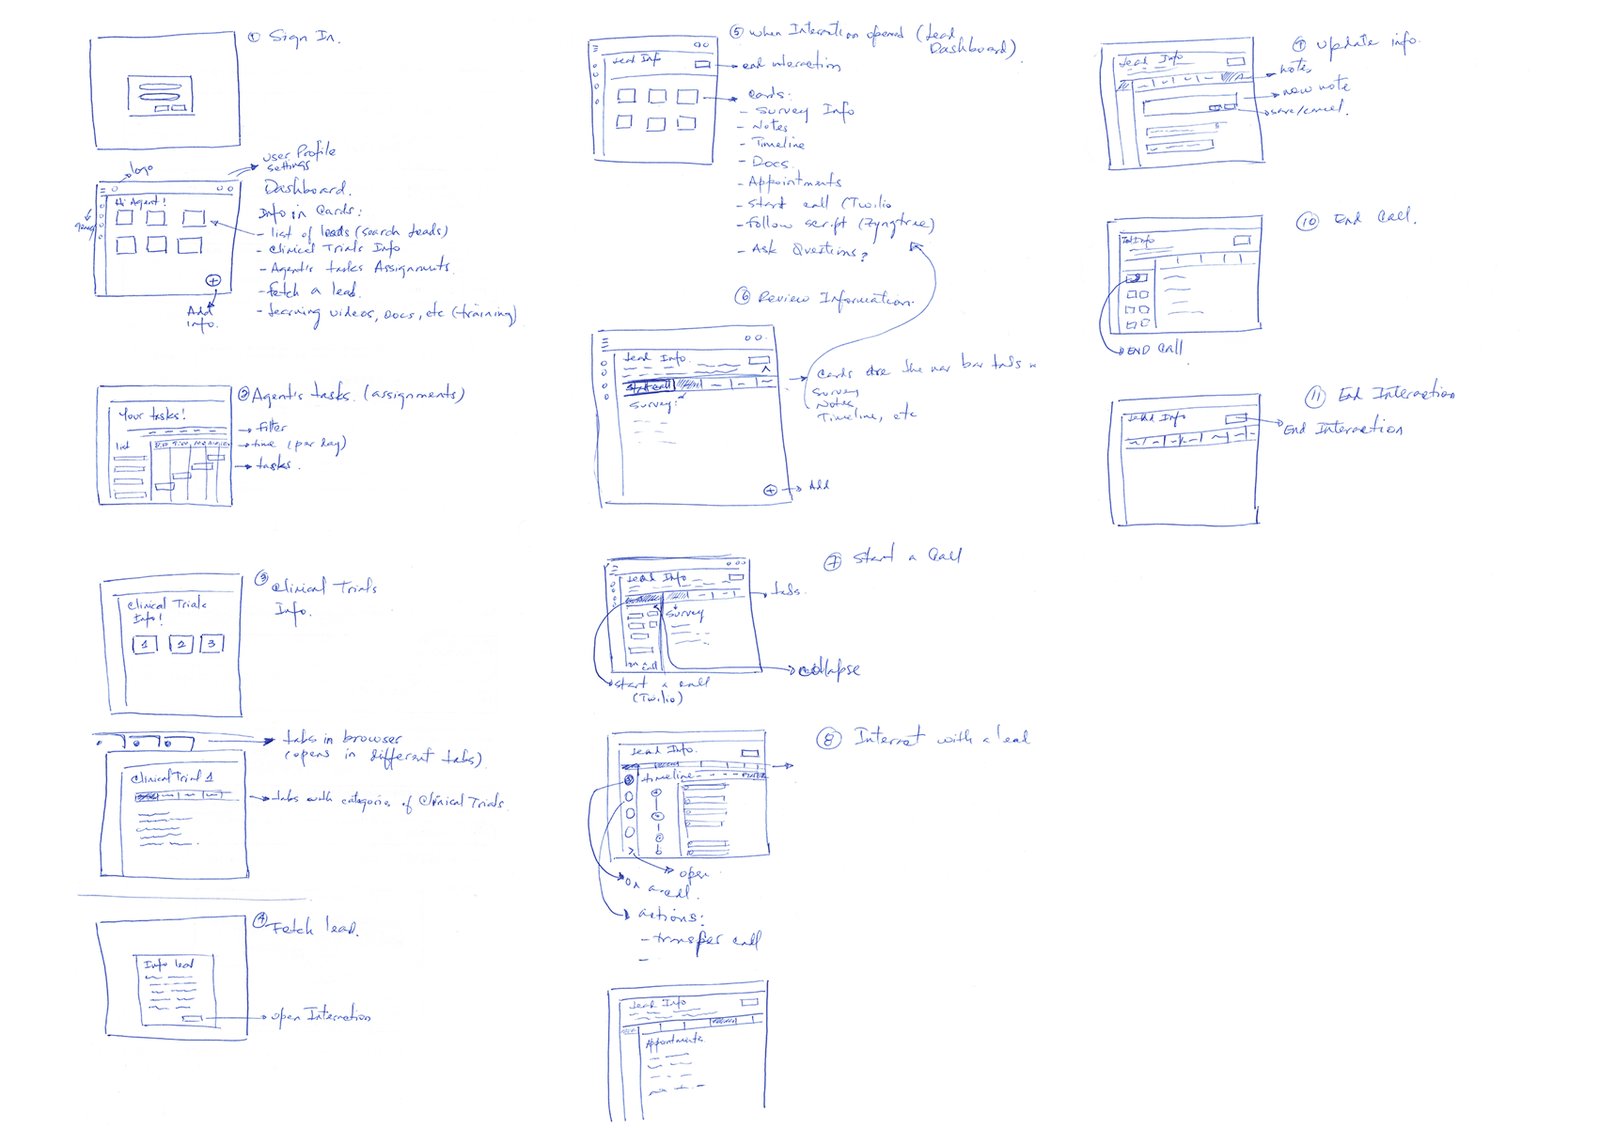 ① Sign In.
logo
User Profile
settings
Hi Agent!
Dashboard.
Info in Cards:
- list of leads (search leads)
- Clinical Trials Info
- Agent's tasks Assignments.
- Fetch a lead.
- Learning videos, Docs, etc (training)
Add
info.
② Agent's tasks. (assignments)
Your tasks!
→ filter
→ time (per day)
list
→ tasks.
③ Clinical Trials
Info.
Clinical Trials
Info!
1 2 3
tabs in browser
(opens in different tabs).
Clinical Trial 1
→ tabs with categories of Clinical Trials.
④ Fetch lead.
Info lead
→ open Interaction
⑤ When Interaction opened (Lead
Dashboard)
Lead Info
→ end interaction
cards:
- Survey Info
- Notes
- Timeline
- Docs.
- Appointments
- Start call (Twilio
- Follow script (Zyngtree)
- Ask Questions?
⑥ Review Information.
Lead Info.
Start call
Survey:
→ Cards are the nav bar tabs
Survey
Notes
Timeline, etc
→ Add
⑦ Start a Call
Lead Info
→ tabs.
Survey
call
→ collapse
start a call
(Twilio)
⑧ Interact with a lead
Lead Info.
timeline
→ open
on a call.
actions:
- transfer call
-
Lead Info
Appointments
⑨ Update info.
Lead Info
→ notes
→ new note
→ save/cancel.
⑩ End Call.
Lead Info
→ END Call
⑪ End Interaction
Lead Info
→ End Interaction